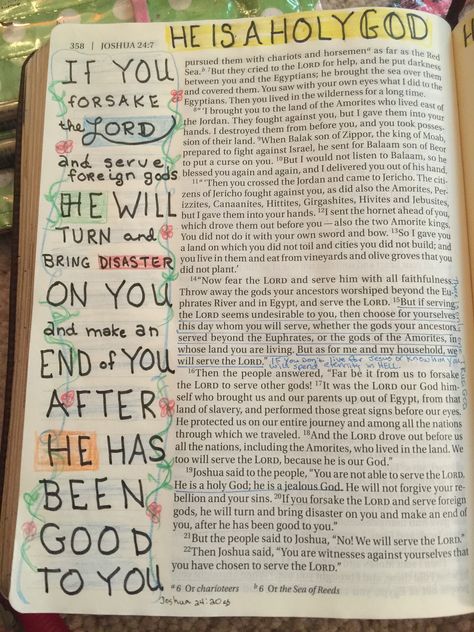 HE IS A HOLY GOD
358 | JOSHUA 24:7
IF YOU
FORSAKE
the LORD
and serve
foreign gods
HE WILL
TURN and
BRING DISASTER
ON YOU
and make an
END of YOU
AFTER
HE HAS
BEEN
GOOD
TO YOU
Joshua 24:20
pursued them with chariots and horsemen a as far as the Red
Sea. b 7 But they cried to the LORD for help, and he put darkness
between you and the Egyptians; he brought the sea over them
and covered them. You saw with your own eyes what I did to the
Egyptians. Then you lived in the wilderness for a long time.
8 “‘I brought you to the land of the Amorites who lived east of
the Jordan. They fought against you, but I gave them into your
hands. I destroyed them from before you, and you took posses-
sion of their land. 9 When Balak son of Zippor, the king of Moab,
prepared to fight against Israel, he sent for Balaam son of Beor
to put a curse on you. 10 But I would not listen to Balaam, so he
blessed you again and again, and I delivered you out of his hand.
11 “‘Then you crossed the Jordan and came to Jericho. The citi-
zens of Jericho fought against you, as did also the Amorites, Per-
izzites, Canaanites, Hittites, Girgashites, Hivites and Jebusites,
but I gave them into your hands. 12 I sent the hornet ahead of you,
which drove them out before you — also the two Amorite kings.
You did not do it with your own sword and bow. 13 So I gave you
a land on which you did not toil and cities you did not build; and
you live in them and eat from vineyards and olive groves that you
did not plant.’
14 “Now fear the LORD and serve him with all faithfulness.
Throw away the gods your ancestors worshiped beyond the Eu-
phrates River and in Egypt, and serve the LORD. 15 But if serving
the LORD seems undesirable to you, then choose for yourselves
this day whom you will serve, whether the gods your ancestors
served beyond the Euphrates, or the gods of the Amorites, in
whose land you are living. But as for me and my household, we
will serve the LORD.” If you don't live for Jesus or know him you
will spend eternity in HELL.
16 Then the people answered, “Far be it from us to forsake
the LORD to serve other gods! 17 It was the LORD our God himself
who brought us and our parents up out of Egypt, from that
land of slavery, and performed those great signs before our eyes.
He protected us on our entire journey and among all the nations
through which we traveled. 18 And the LORD drove out before us
all the nations, including the Amorites, who lived in the land. We
too will serve the LORD, because he is our God.”
19 Joshua said to the people, “You are not able to serve the LORD.
He is a holy God; he is a jealous God. He will not forgive your re-
bellion and your sins. 20 If you forsake the LORD and serve foreign
gods, he will turn and bring disaster on you and make an end of
you, after he has been good to you.”
21 But the people said to Joshua, “No! We will serve the LORD.”
22 Then Joshua said, “You are witnesses against yourselves that
you have chosen to serve the LORD.”
a 6 Or charioteers b 6 Or the Sea of Reeds